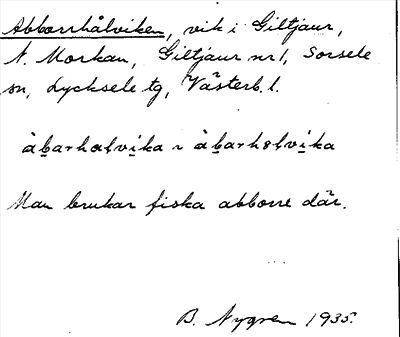 Abborrhålviken, vik i Giltjaur,
N. Morkan, Giltjaur nr 1, Sorsele
sn, Lycksele tg, Västerb. l.
àb̲arhalvi̲ka ~ àb̲arhɵlvi̲ka
Man brukar fiska abborre där.
B. Nygren 1935.